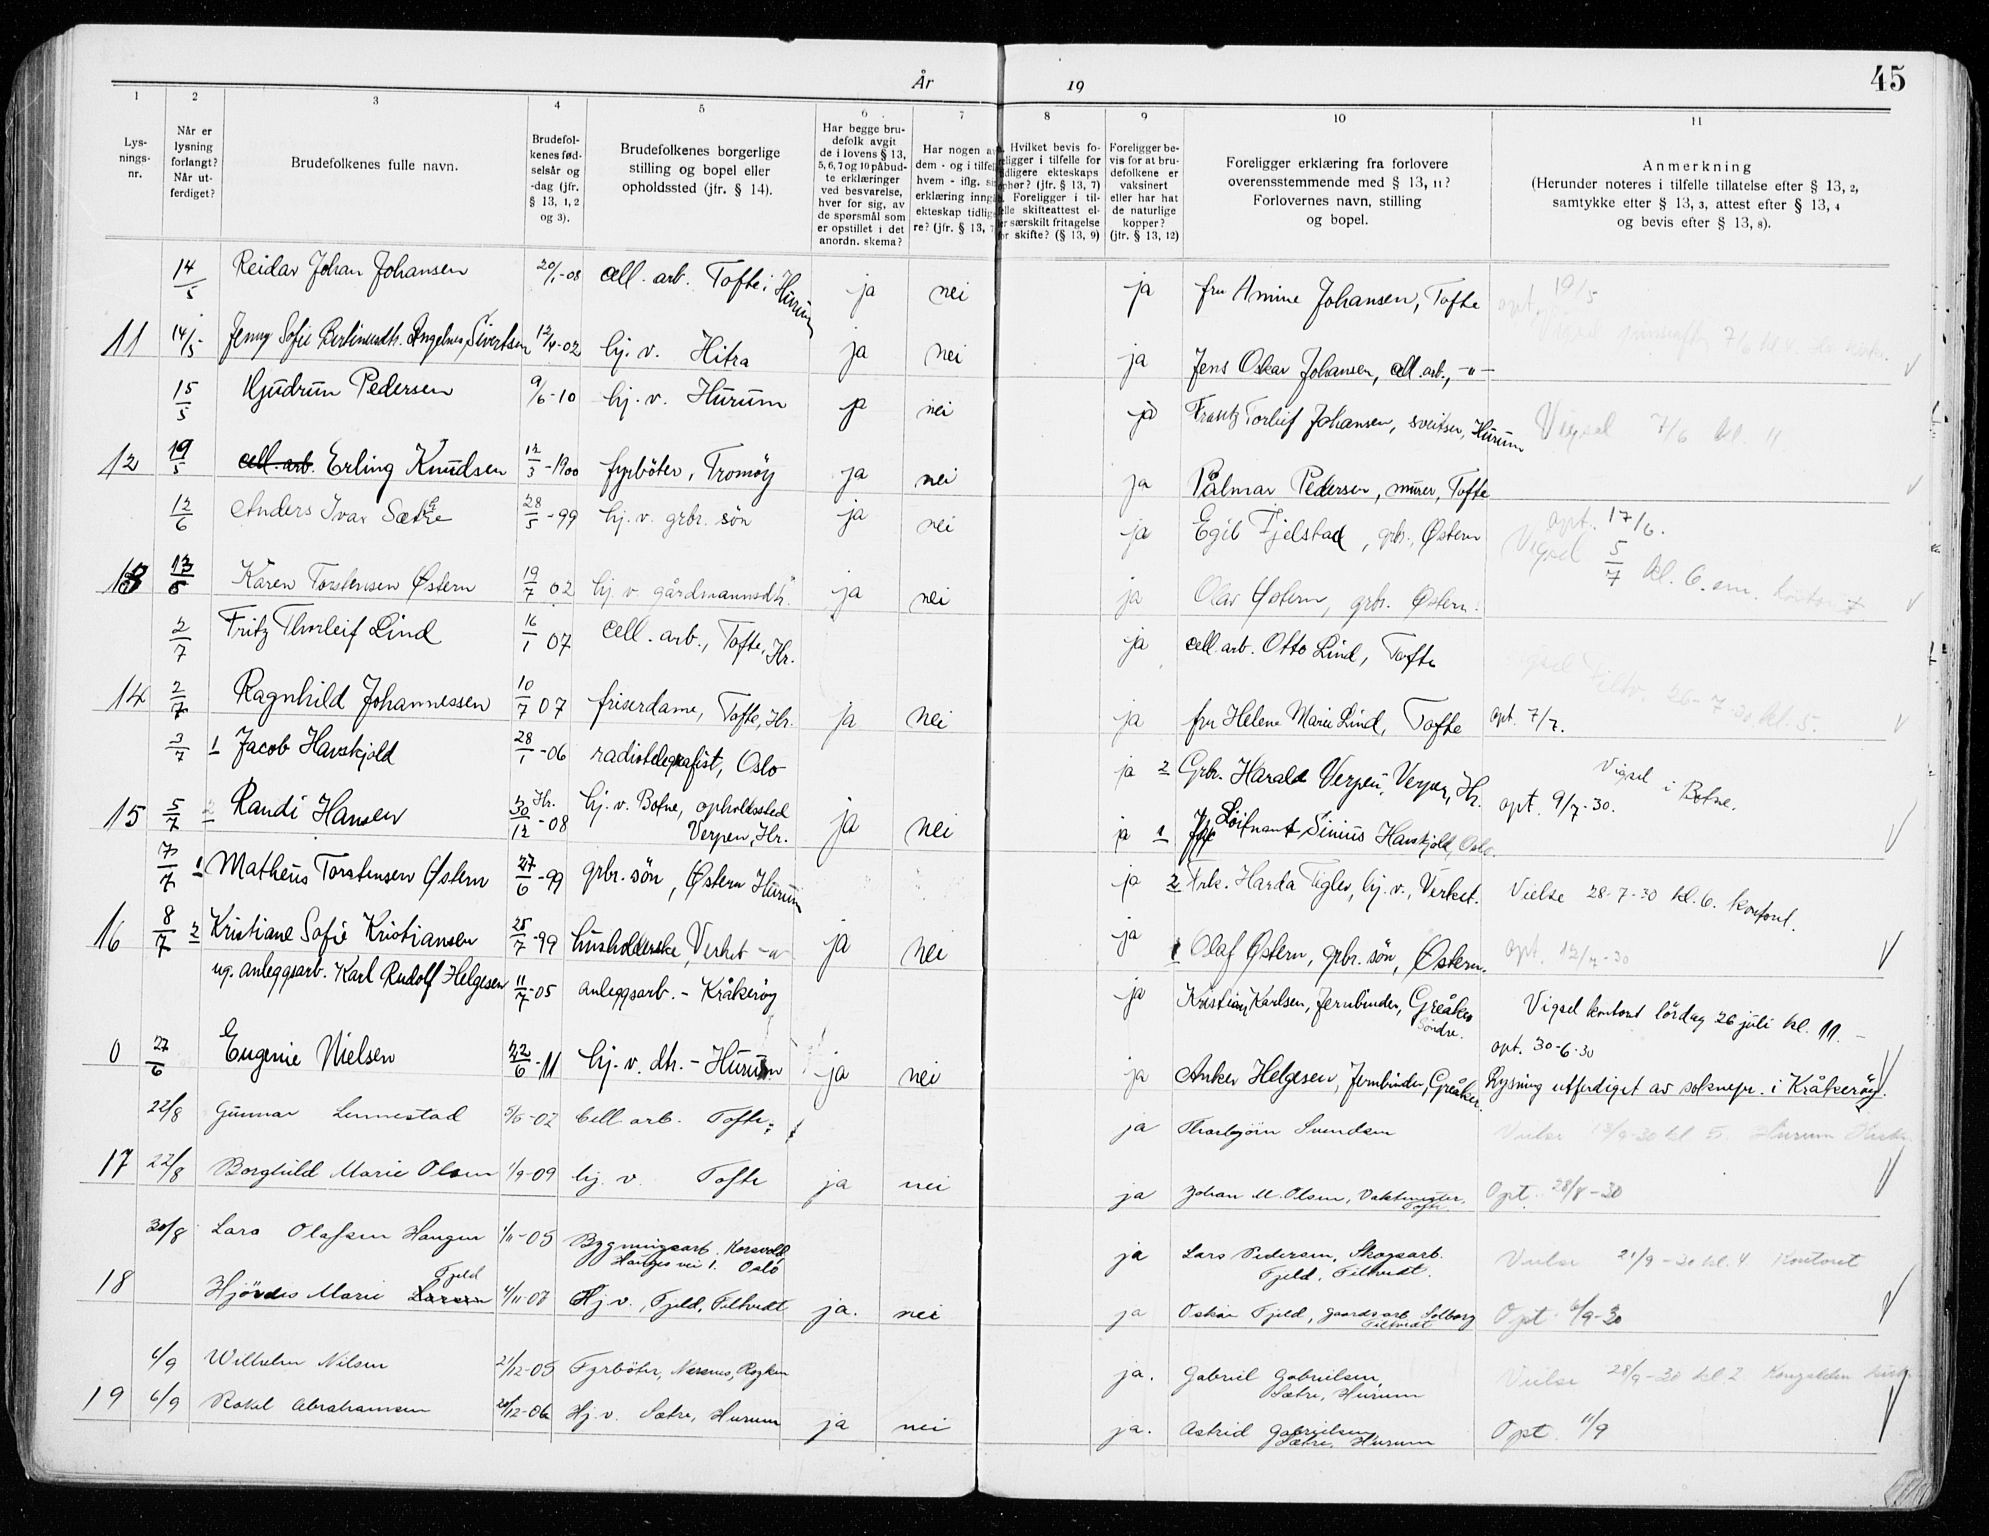 År 19
45
1 2 3 4 5 6 7 8 9 10 11
Lys-
nings-
nr.
Når er
lysning
forlangt?
Når ut-
ferdiget?
Brudefolkenes fulle navn.
Brudefol-
kenes fød-
selsår og
-dag (jfr.
§ 13, 1, 2
og 3).
Brudefolkenes borgerlige
stilling og bopel eller
opholdssted (jfr. § 14).
Har begge bru-
defolk avgit
de i lovens § 13,
5, 6, 7 og 10 påbud-
te erklæringer
ved besvarelse,
hver for sig, av
de spørsmål som
er opstillet i det
anordn. skema?
Har nogen a
dem - og i tilfel
hvem - iflg. si
erklæring inng
ekteskap tidlig
re? (jfr. § 13, 7
Hvilket bevis fo-
eligger i tilfelle for
idligere ekteskaps
phør? (jfr. § 13, 7)
Foreligger i til-
elle skifteattest el-
er særskilt fritagelse
or skifte? (§ 13, 9)
Foreligger be-
vis for at bru-
defolkene er
vaksinert
eller har hat
de naturlige
kopper?
(jfr. § 13, 12)
Foreligger erklæring fra forlovere
overensstemmende med § 13, 11?
Forlovernes navn, stilling
og bopel.
Anmerkning
(Herunder noteres i tilfelle tillatelse efter § 13, 2,
samtykke efter § 13, 3, attest efter § 13, 4
og bevis efter § 13, 8).
14/5 Reidar Johan Johansen 20/1-08 cell. arb. Tofte i Hurum ja nei ja fru Amine Johansen, Tofte opt. 19/5
11 14/5 Jenny Sofie Sivertsen 12/4-02 hj. v. Hitra ja nei ja Jens Oskar Johansen, cell. arb., -"-
15/5 Gudrun Pedersen 9/6-10 hj. v. Hurum ja nei ja Frantz Torleif Johansen, sveitser, Hurum Vigsel 7/6 kl. 11
12 19/5 cell. arb. Erling Knudsen 12/3-1900 fyrböter, Tromøy ja nei ja Pålmar Pedersen, murer, Tofte
12/6 Anders Ivar Sætre 28/5-99 hj. v. grbr. søn ja nei ja Egil Fjelstad, grb., Østern opt. 17/6.
13 13/6 Karen Torstensen Østern 19/7 02 hj. v. gårdmannsdtr. ja nei ja Olav Østern, grbr. Østern. Vigsel 5/7 kl. 6. em. kontoret
2/7 Fritz Thorleif Lind 16/1 07 cell. arb., Tofte, Hr. ja cell. arb. Otto Lind, Tofte
14 2/7 Ragnhild Johannessen 10/7 07 friserdame, Tofte, Hr. ja nei ja fru Helene Marie Lind, Tofte opt. 7/7. 26-7-30 kl. 5.
3/7 1 Jacob Havskjold 28/1-06 radiotelegrafist, Oslo ja 2 Grbr. Harald Verpen, Verpen, Hr. Vigsel i Botne.
15 5/7 2 Randi Hansen 30/12-08 Hr. hj. v. Botne, opholdssted
Verpen, Hr. ja nei ja 1 Løitnant Sinius Havskjold, Oslo. opt. 9/7-30.
7/7 1 Matheus Torstensen Østern 27/6-99 grbr. søn, Østern Hurum ja 2 Frk. Harda Tigler, hj. v., Verket. Vielse 28-7-30 kl. 6. kontoret.
16 8/7 2 Kristiane Sofie Kristiansen 25/7-99 husholderske, Verket -"- ja nei ja 1 Olaf Østern, grbr. søn, Østern. opt. 12/7-30
ug. anleggsarb. Karl Rudolf Helgesen 11/7-05 anleggsarb. - Kråkerøy ja Kristian Karlsen, Jernbinder, Greåker
Søndre. Vigsel kontoret lördag 26 juli kl. 11.
0 27/6 Eugenie Nielsen 22/6-11 hj. v. dtr. - Hurum ja nei ja Anker Helgesen, Jernbinder, Greåker. opt. 30-6-30
Lysning utferdiget av soknepr. i Kråkerøy.
22/8 Gunnar Lennestad 5/5-02 Cell arb. Tofte ja Thorbjørn Svendsen Vielse 13/9-30 kl 5. Hurum Kirke
17 22/8 Borghild Marie Olsen 1/9-09 hj. v. Tofte ja nei ja Johan M. Olsen, Vaktmester,
Tofte. Opt. 28/8-30
30/8 Lars Olafsen Haugen 1/11-05 Bygningsarb. Korsvold
Hauges vei 1. Oslo ja Lars Pedersen, Skogsarb.
Fjeld, Filtvedt. Vielse 21/9-30 kl. 4 Kontoret
18 Hjördis Marie Larsen Fjeld 4/11-07 Hj. v., Fjeld, Filtvedt ja. nei ja Oskar Fjeld, gaardsarb. Solborg
Filtvedt Opt. 6/9-30
6/9 Wilhelm Nilsen 21/12-05 Fyrböter, Nærsnes, Røyken ja. Gabriel Gabrielsen,
Sætre, Hurum Vielse 28/9-30 kl 2 Kongsdelen kirke
19 6/9 Rakel Abrahamsen 20/12-06 Hj. v. Sætre, Hurum ja nei ja. Astrid Gabrielsen
Sætre, Hurum Opt. 11/9